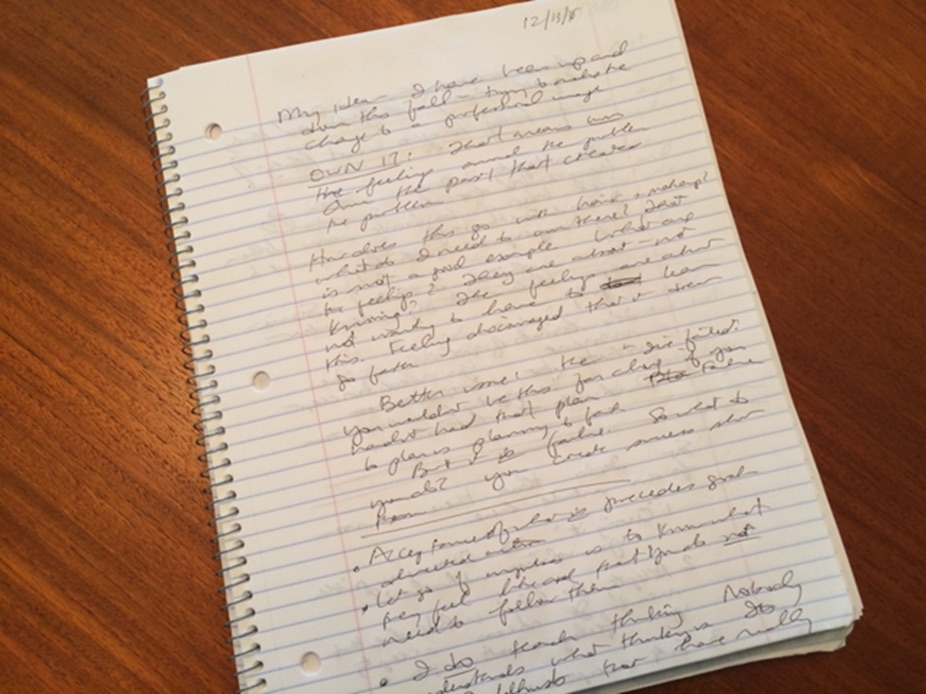 12/13/15
My idea - I have been up and
down this fall - trying to make the
change to a professional image
OWN IT: That means own
the feelings around the problem
Own the part that creates
the problem
How does this go with hair & makeup?
what do I need to own there? That
is not a good example. What are
the feelings? They are about - not
knowing? The feelings are about
not wanting to have to learn
this. Feeling discouraged that I
go faster
Better issue:
you wouldn't be this far along if you
hadn't had that plan. Failure
to plan is planning to fail
But failure. So what do
you do? You create success
from
• Acceptance of what is precedes goal
directed action
• Let go of is to know what
they feel like and that you do not
need to follow them
• I do teach thinking Nobody
understands what thinking is Its
that have really